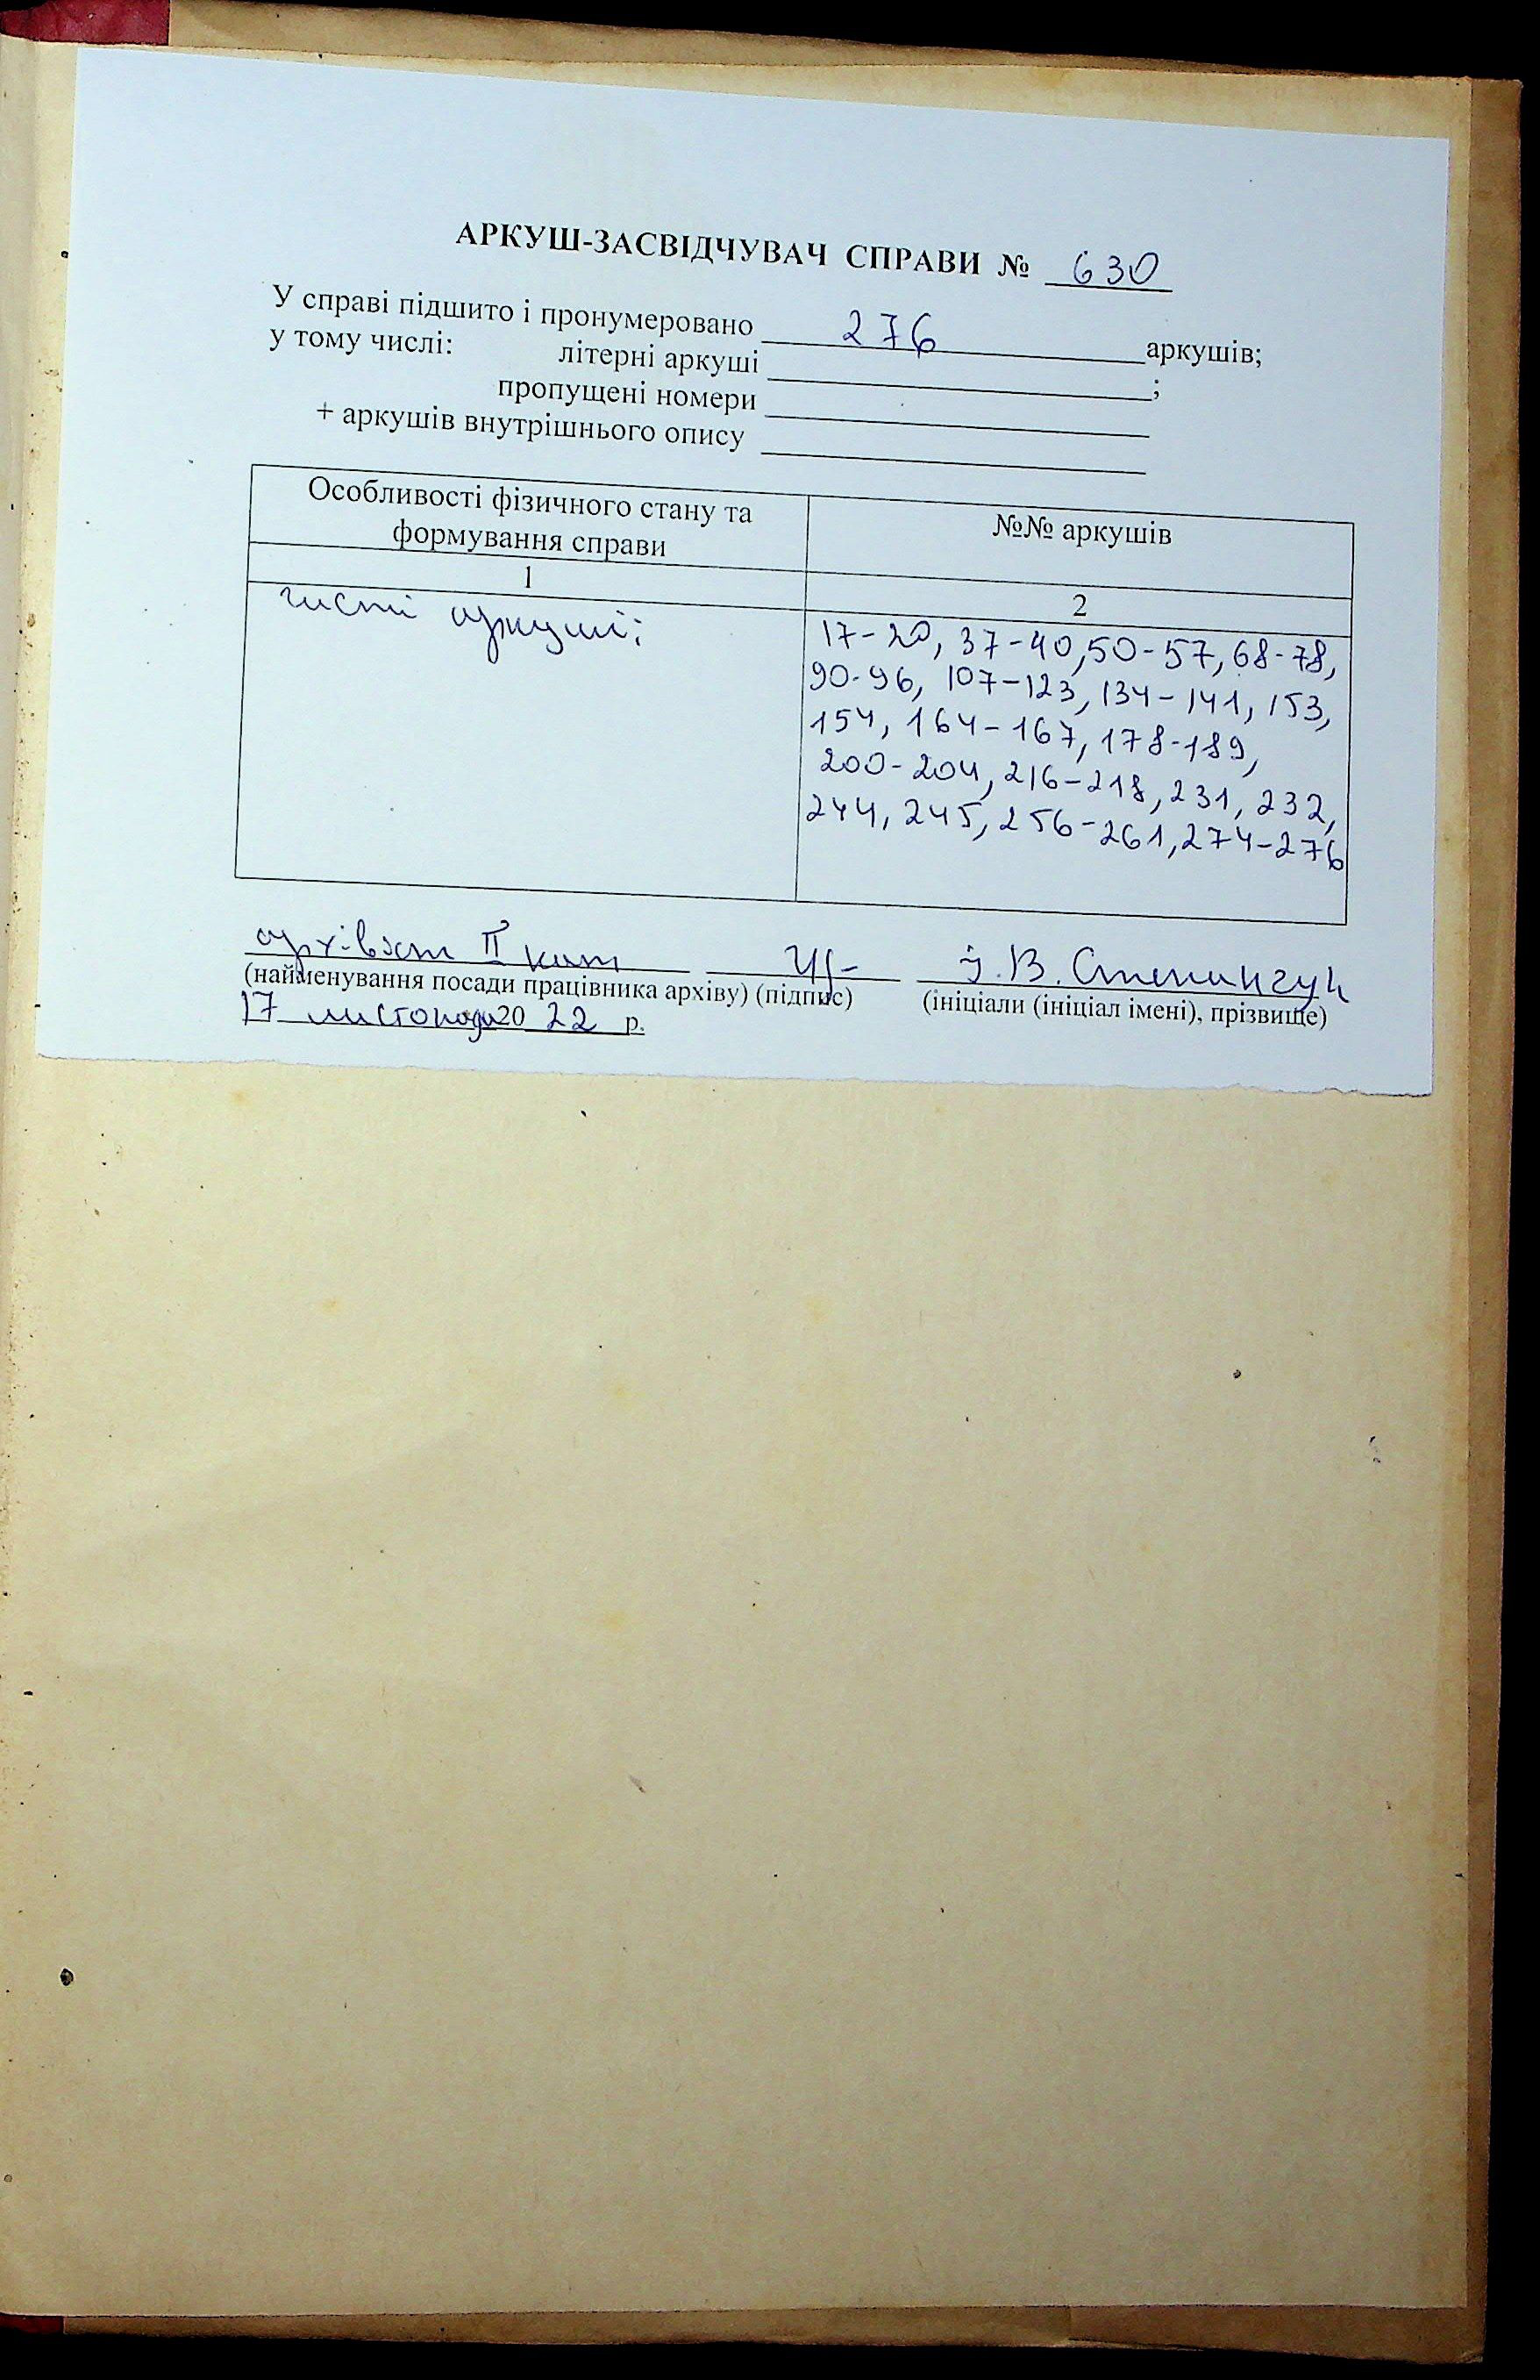 АРКУШ-ЗАСВІДЧУВАЧ СПРАВИ № 630
У справі підшито і пронумеровано 276 аркушів;
у тому числі: літерні аркуші ;
пропущені номери
+ аркушів внутрішнього опису
Особливості фізичного стану та
формування справи
№№ аркушів
1
2
чисті аркуші:
17-20, 37-40, 50-57, 68-78,
90-96, 107-123, 134-141, 153,
154, 164-167, 178-189,
200-204, 216-218, 231, 232,
244, 245, 256-261, 274-276
архівіст ІІ кат І. В.
(найменування посади працівника архіву) (підпис) (ініціали (ініціал імені), прізвище)
17 листопада 20 22 р.